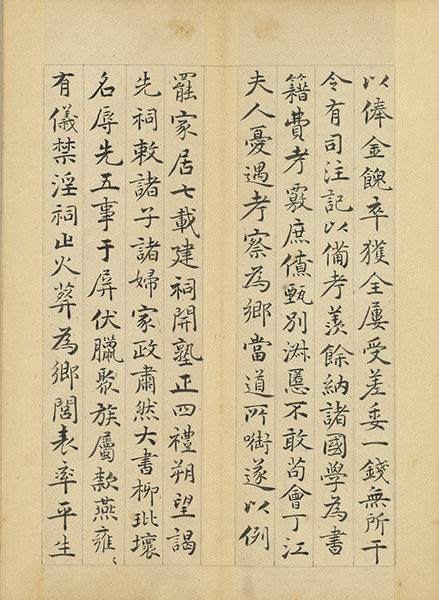 以俸金餽卒獲全屢受差委一錢無所干
令有司注記以備考羨餘納諸國學為書
籍費考覈庶僚甄別淑慝不敢苟會丁江
夫人憂遇考察為鄉當道所啣遂以例
罷家居七載建祠開塾正四禮朔望謁
先祠敕諸子諸婦家政肅然大書柳玭壞
名辱先五事于屏伏臘聚族屬款燕雍〻
有儀禁淫祠止火葬為鄉閭表率平生